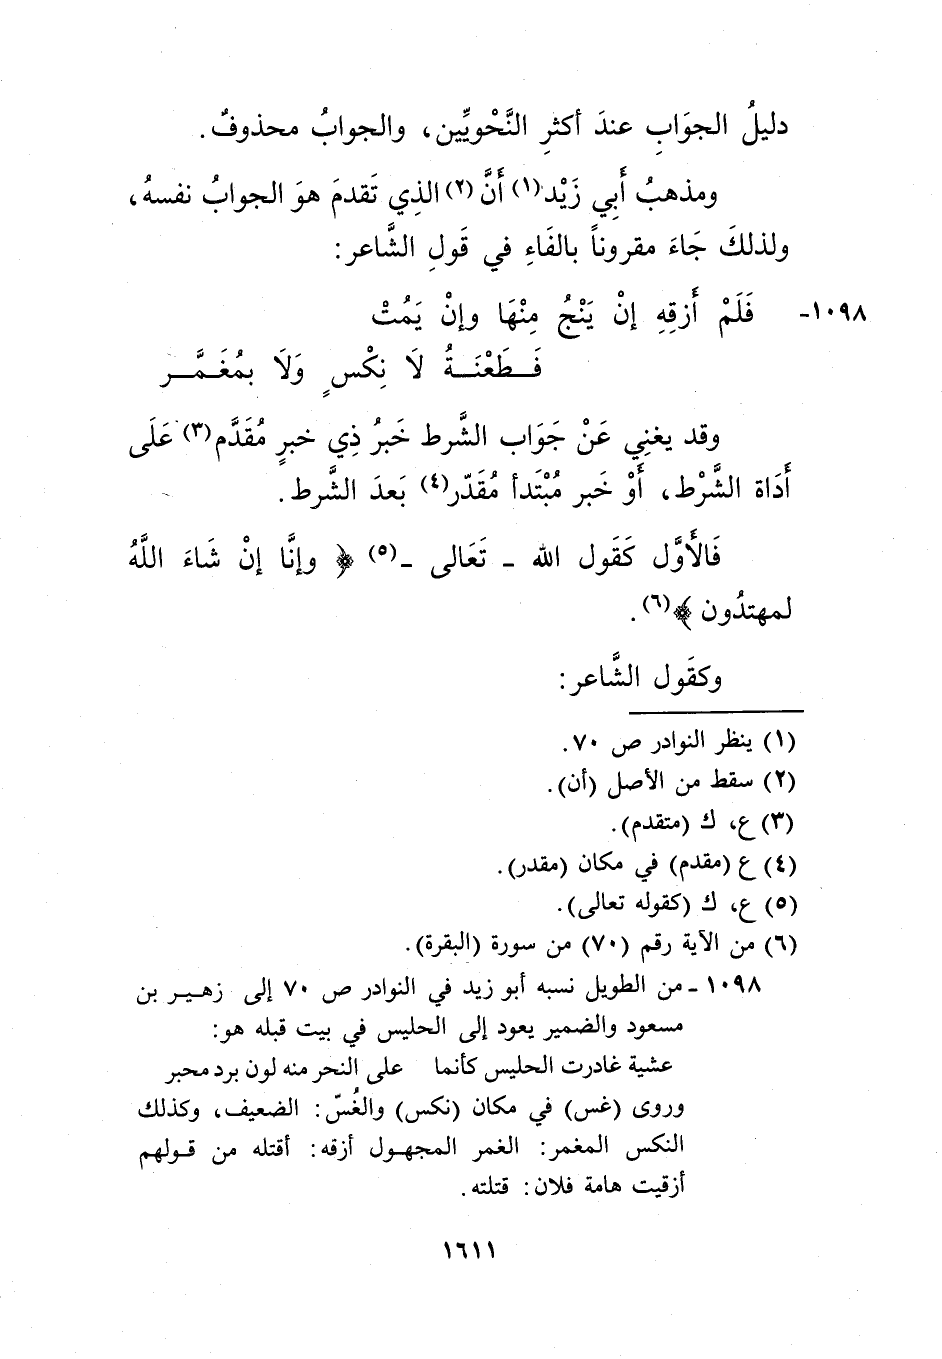 دليلُ الجوَابِ عندَ أكثرِ النَّحْويِّين، والجوابُ محذوفٌ.
ومذهبُ أَبِي زَيْد(١) أَنَّ(٢) الذِي تَقدمَ هوَ الجوابُ نفسهُ،
ولذلكَ جَاءَ مقروناً بالفَاءِ في قَولِ الشَّاعر:
١٠٩٨- فَلَمْ أَرْقِهِ إنْ يَنْجُ مِنْهَا وإنْ يَمُتْ
فَـطَعْنَـةُ لَا نِكْسٍ وَلَا بمُغَـمَّـر
وقد يغنِي عَنْ جَوَاب الشَّرط خَبرُ ذِي خبرٍ مُقَدَّم(٣) عَلَى
أَدَاة الشَّرْط، أَوْ خَبر مُبْتَدأ مُقَدّر(٤) بَعدَ الشَّرط.
فَالأَوَّل كَقَول الله - تَعَالى -(٥) ﴿ وإنَّا إنْ شَاءَ اللَّهُ
لمهتدُون ﴾(٦).
وكقَول الشَّاعر:
(١) ينظر النوادر ص ٧٠.
(٢) سقط من الأصل (أن).
(٣) ع، ك (متقدم).
(٤) ع (مقدم) في مكان (مقدر).
(٥) ع، ك (كقوله تعالى).
(٦) من الآية رقم (٧٠) من سورة (البقرة).
١٠٩٨ - من الطويل نسبه أبو زيد في النوادر ص ٧٠ إلى زهـيـر بن
مسعود والضمير يعود إلى الحليس في بيت قبله هو:
عشية غادرت الحليس كأنما على النحر منه لون برد محبر
وروى (غس) في مكان (نكس) والغُسّ: الضعيف، وكذلك
النكس المغمر: الغمر المجهـول أزقه: أقتله من قـولهم
أزقيت هامة فلان: قتلته.
١٦١١